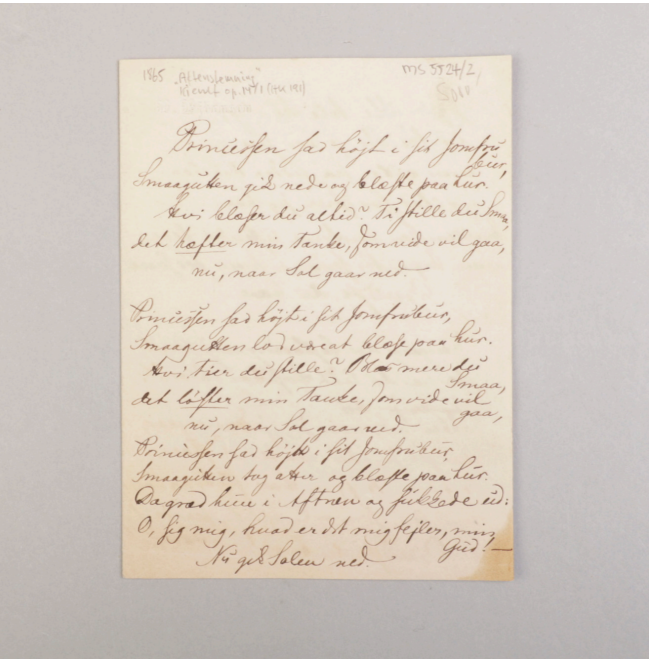 1865 "Aftenstemning"
Kjerulf op. 14 1 (HK 191)
MS 5524/2,
Prinsessen sad højt i sit Jomfru
bur,
Smaagutten gik nede og blæste paa Lur.
Hvi blæser du altid? Ti stille du Smaa,
det hæfter min Tanke, som vide vil gaa,
nu, naar Sol gaar ned.
Prinsessen sad højt i sit Jomfrubur,
Smaagutten lod være at blæse paa Lur.
Hvi tier du stille? Blæs mere du
Smaa,
det løfter min Tanke, som vide vil
gaa,
nu, naar Sol gaar ned.
Prinsessen sad højt i sit Jomfrubur,
Smaagutten tog atter og blæste paa Lur.
Da græd hun i Aftnen og sukkede ud:
O, sig mig, hvad er det mig fejler, min
Gud! —
Nu gik Solen ned.